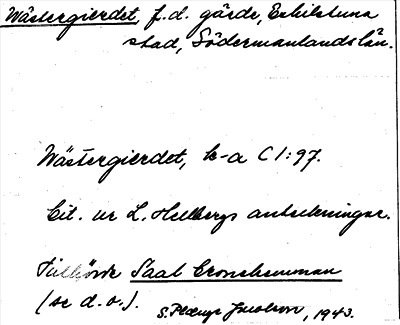 Wästergierdet, f.d. gärde, Eskilstuna
stad, Södermanlands län.
Wästergierdet, k-a C I:97.
Cit. ur L. Hellbergs anteckningar.
Tillhörde Saab Cronhemman
(se d. o.). S. Jacobson, 1943.